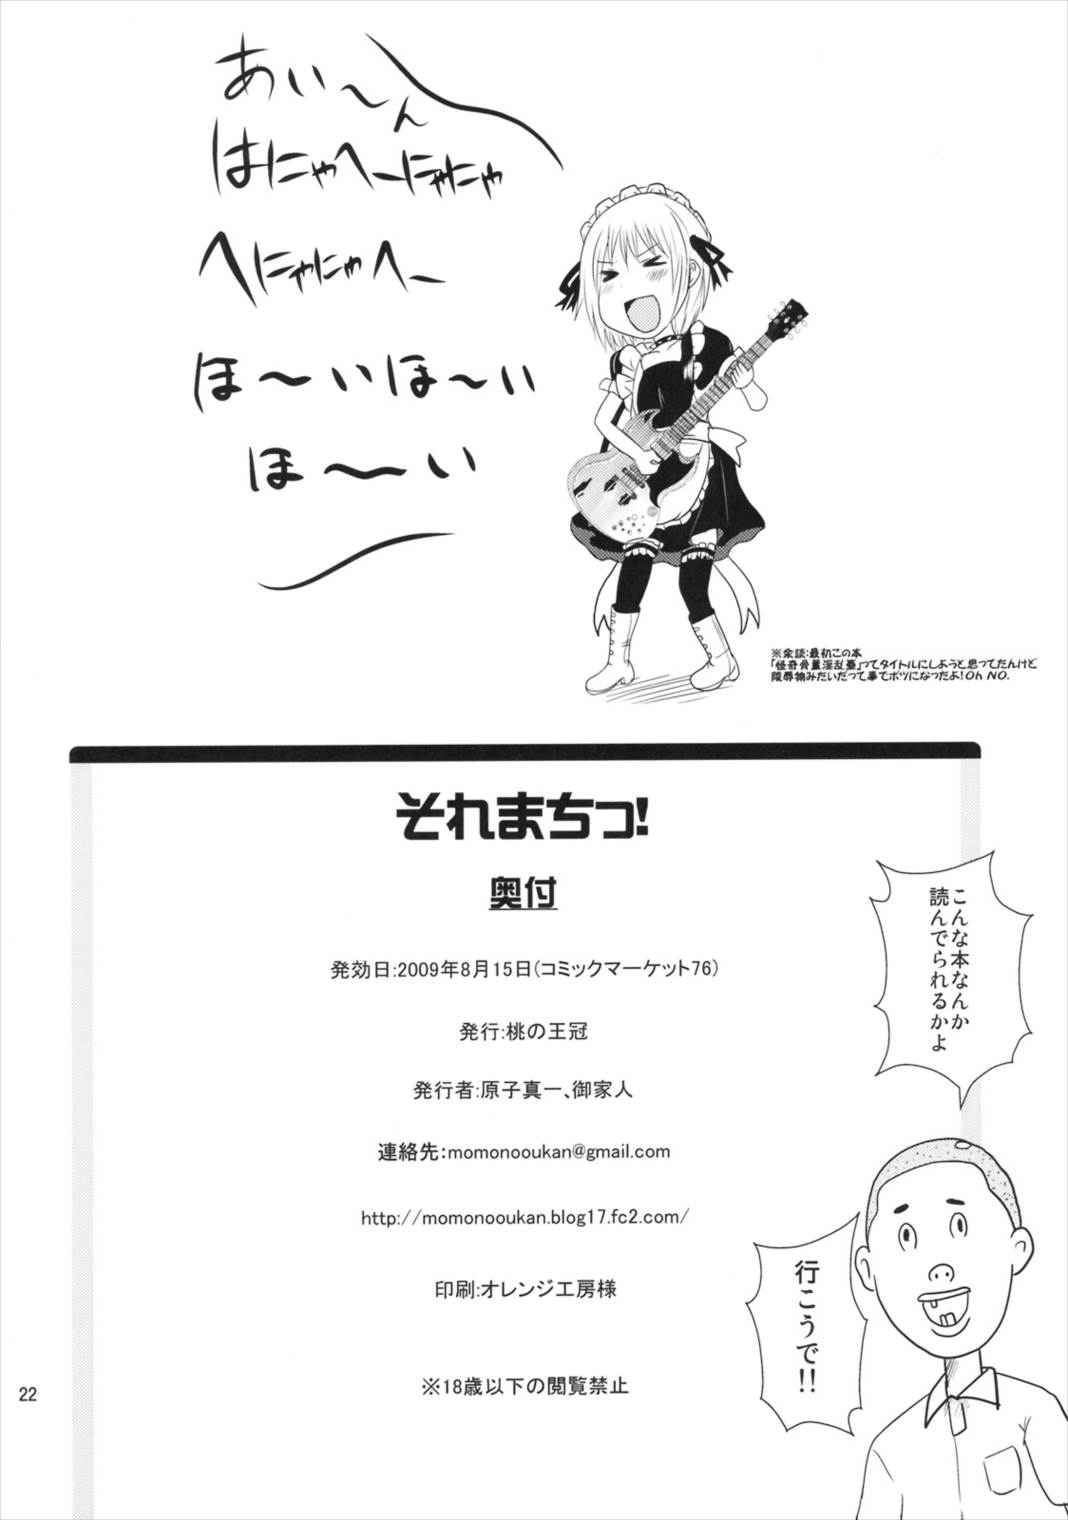 あい〜ん
はにゃへーにゃにゃ
へにゃにゃへー
ほ〜いほ〜い
ほ〜い
※余談:最初この本
「怪奇骨董淫乱壺」ってタイトルにしようと思ってたんけど
陵辱物みだいだって事でボツになつたよ!Oh NO.
それまちっ!
奥付
発効日:2009年8月15日(コミックマーケット76)
発行:桃の王冠
発行者:原子真一、御家人
連絡先:momonooukan@gmail.com
http://momonooukan.blog17.fc2.com/
印刷:オレンジ工房様
※18歳以下の閲覧禁止
こんな本なんか
読んでられるかよ
行こうで!!
22